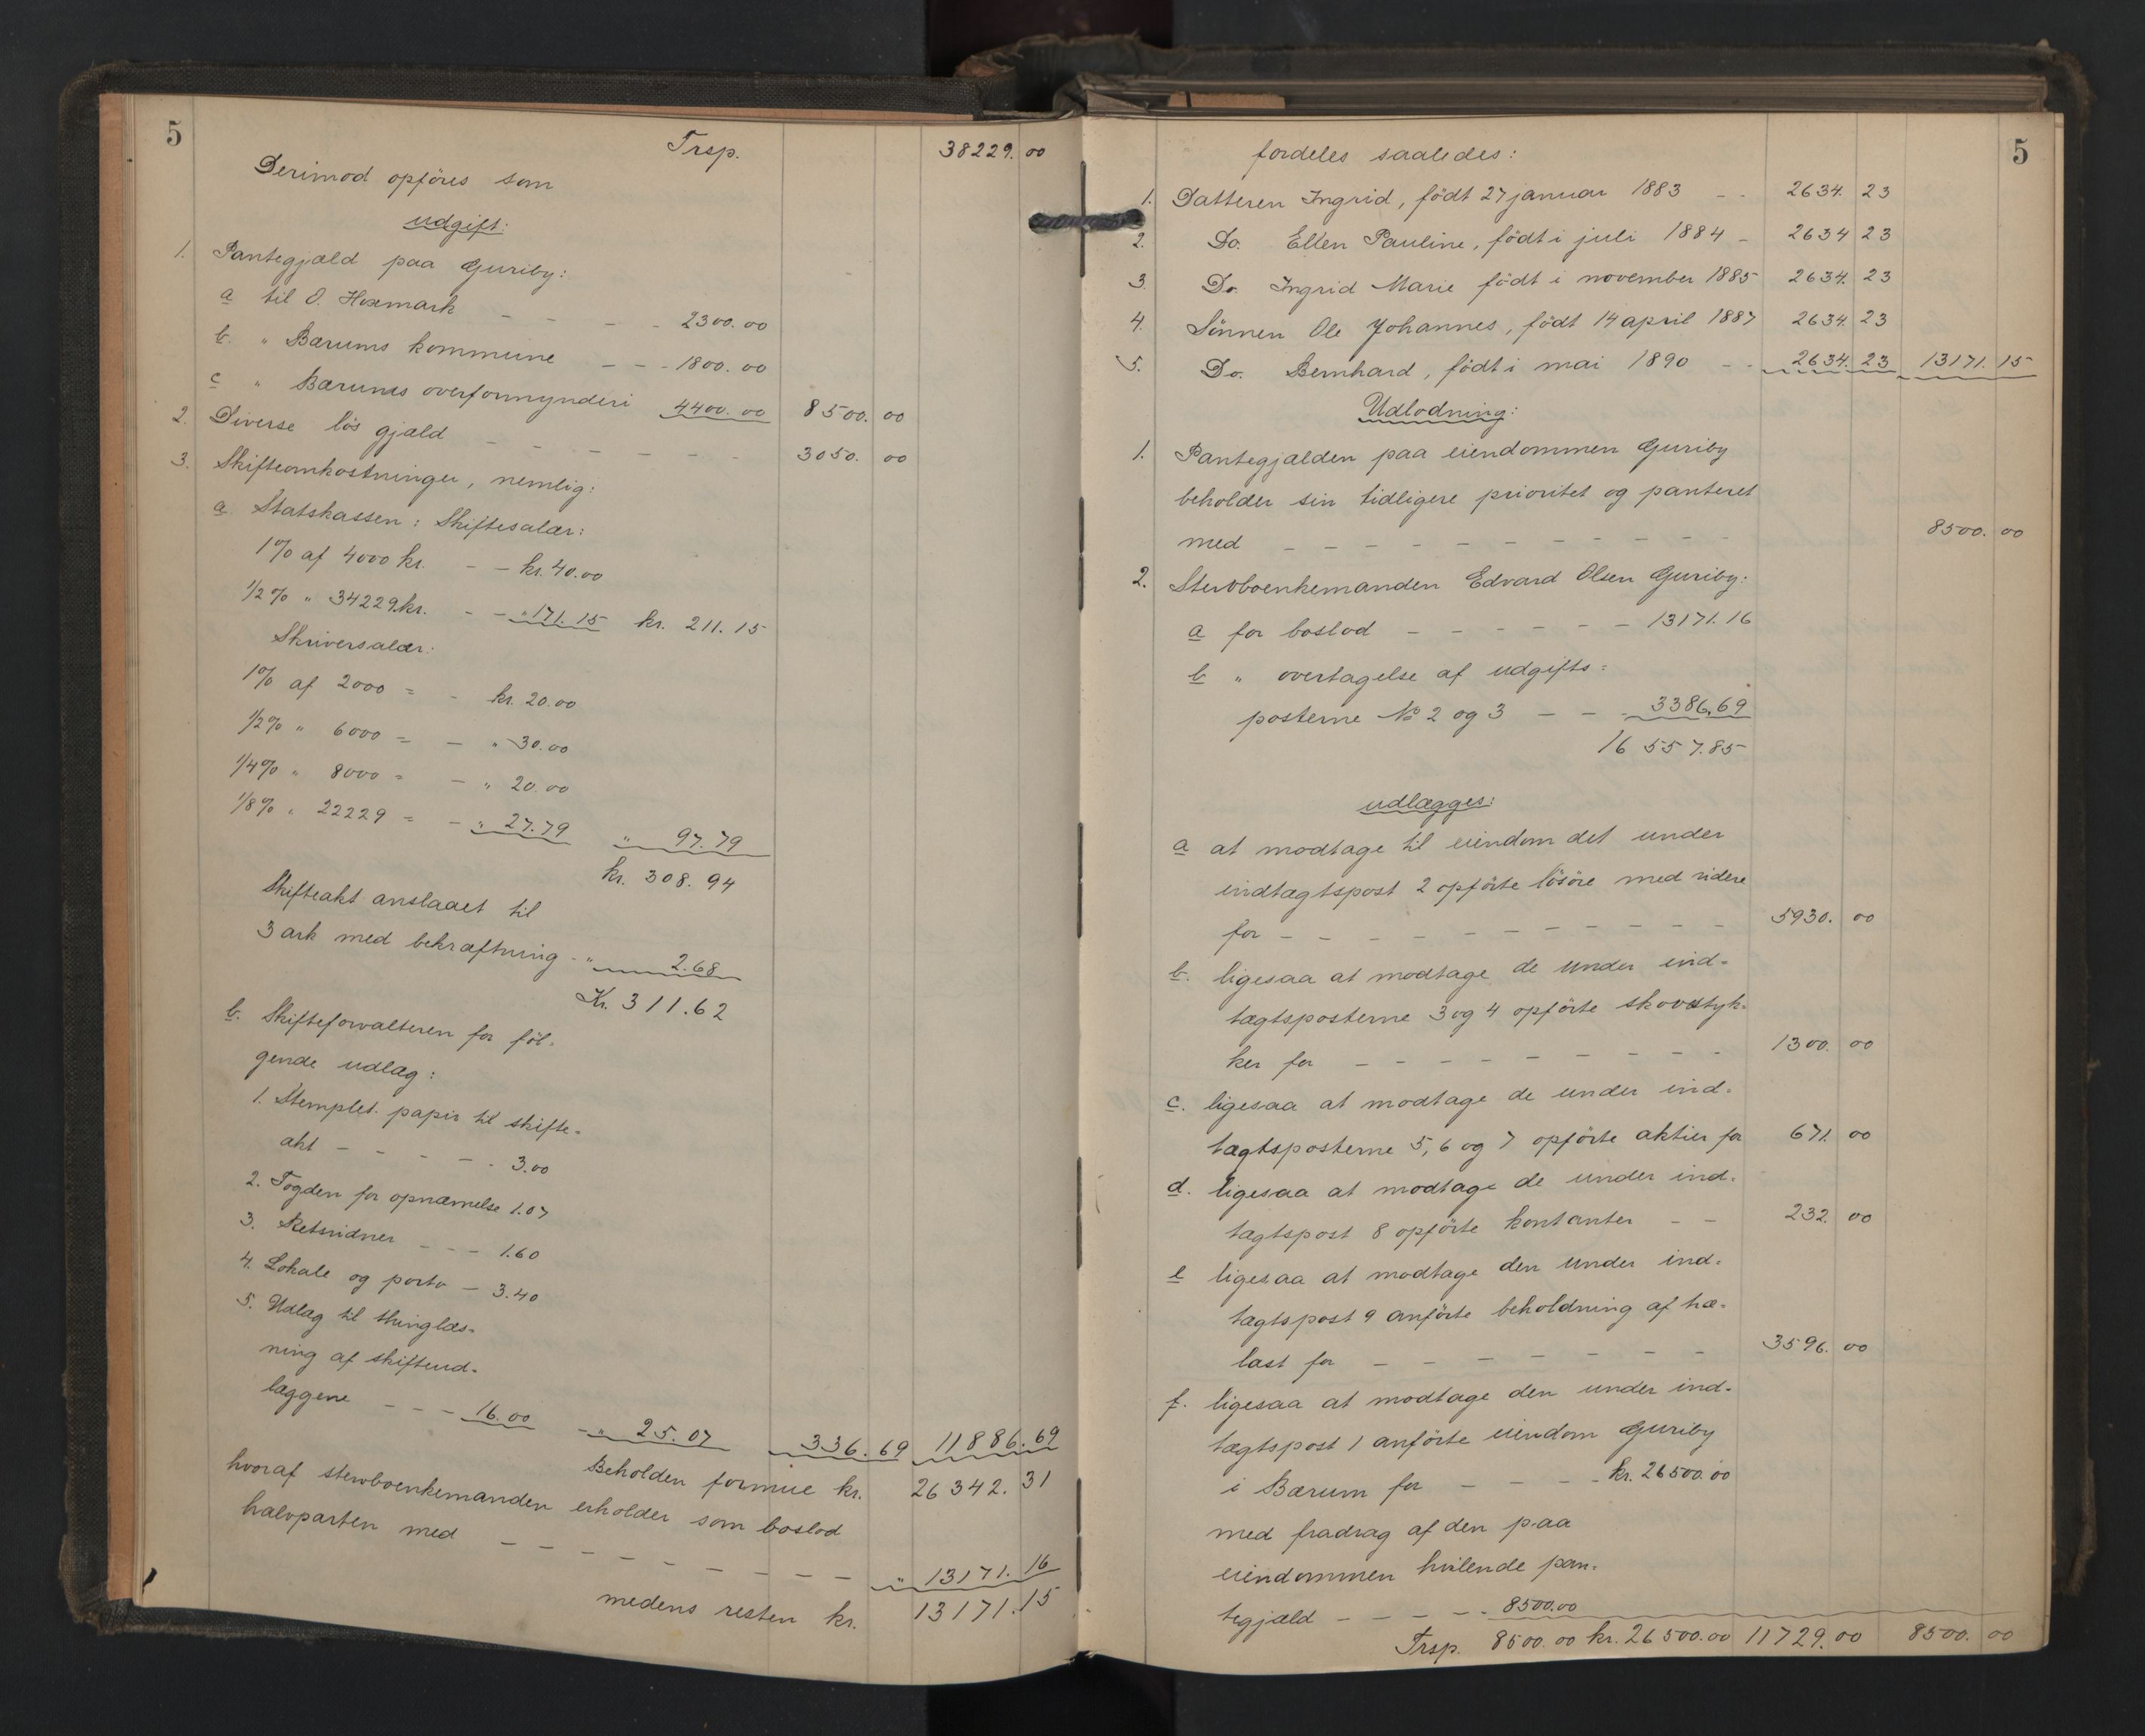 5
Trsp. 38229. 00
Derimod opføres som
udgift:
1. Pantegjæld paa Guriby:
a til O. Hoxmark – – – – 2300.00
b. " Bærums kommune – – – 1800.00
c " Bærums overformynderi 4400.00 8500. 00
2. Diverse løs gjæld – – – – – – 3050. 00
3. Skifteomkostninger, nemlig:
a. Statskassen: Skiftesalær:
1% af 4000 kr. – – kr. 40.00
1/2% " 34229 kr. – – " 171.15 kr. 211.15
Skriversalær:
1% af 2000 = – kr. 20.00
1/2% " 6000 = – " 30.00
1/4% " 8000 = – " 20.00
1/8% " 22229 = – " 27.79 " 97.79
kr. 308.94
Skifteakt anslaaet til
3 ark med bekræftning – " 2.68
Kr. 311.62
b. Skifteforvalteren for føl-
gende udlæg:
1. Stemplet papir til skifte-
akt – – – – – 3.00
2. Fogden for opnævnelse 1.07
3. Retsvidner – – – 1.60
4. Lokale og porto – 3.40
5. Udlæg til thinglæs-
ning af skifteud-
læggene – – – 16.00 – " 25.07 336.69 11886.69
Beholden formue kr. 26342.31
hvoraf stervboenkemanden erholder som boslod
halvparten med – – – – – – – – – " 13171.16
medens resten kr. 13171.15
5
fordeles saaledes:
1. Datteren Ingrid, født 27 januar 1883 – – 2634. 23
2. Do. Ellen Pauline, født i juli 1884 – 2634 23
3. Do. Ingrid Marie født i november 1885 2634. 23
4. Sønnen Ole Johannes, født 14 april 1887 2634. 23
5. Do. Bernhard, født i mai 1890 – – 2634. 23 13171. 15
Udlodning:
1. Pantegjælden paa eiendommen Guriby
beholder sin tidligere prioritet og panteret
med – – – – – – – – – – – 8500. 00
2. Stervboenkemanden Edvard Olsen Guriby:
a for boslod – – – – – – 13171.16
b " overtagelse af udgifts=
posterne No 2 og 3 – – – 3386,69
16557.85
udlægges:
a at modtage til eiendom det under
indtægtspost 2 opførte løsøre med videre
for – – – – – – – – – – – 5930. 00
b. ligesaa at modtage de under ind=
tægtsposterne 3 og 4 opførte skovstyk-
ker for – – – – – – – – – 1300. 00
c. ligesaa at modtage de under ind=
tægtsposterne 5, 6 og 7 opførte aktier for 671. 00
d. ligesaa at modtage de under ind-
tægtspost 8 opførte kontanter – – 232. 00
e ligesaa at modtage den under ind-
tægtspost 9 anførte beholdning af træ-
last for – – – – – – – – 3596. 00
f. ligesaa at modtage den under ind-
tægtspost 1 anførte eiendom Guriby
i Bærum for – – – – kr. 26500.00
med fradrag af den paa
eiendommen hvilende pan-
tegjæld – – – – – 8500.00
Trsp. 8500.00 kr. 26500.00 11729.00 8500. 00